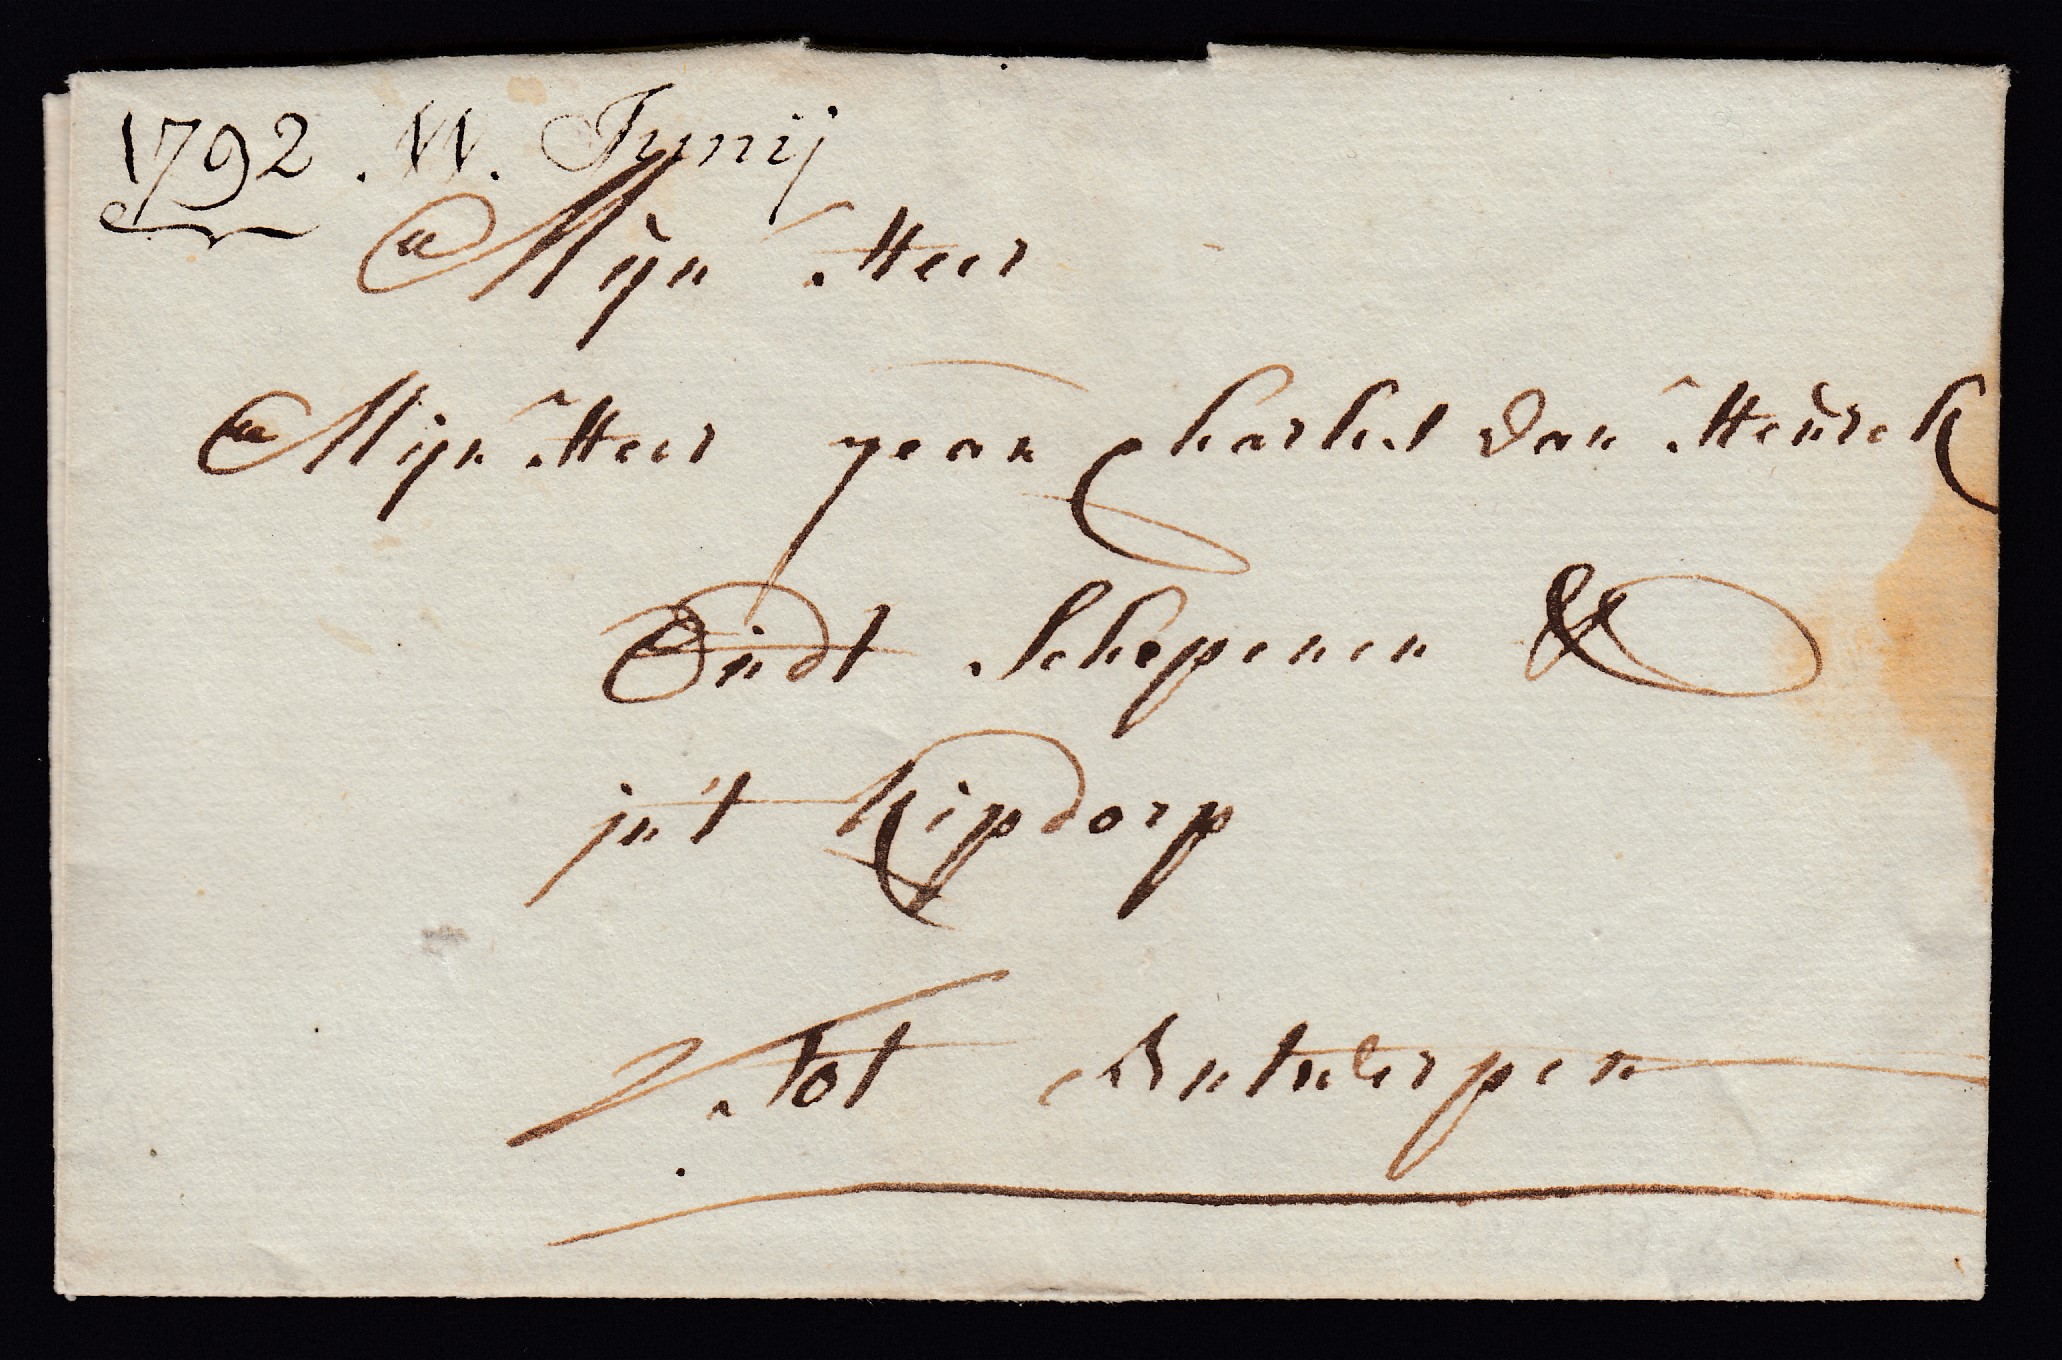 1792. 11. Junij
Mijn Heer
Mijn Heer jean Charles Van Heurck
Oudt Schepenen &
in't Kipdorp
Tot Antwerpen